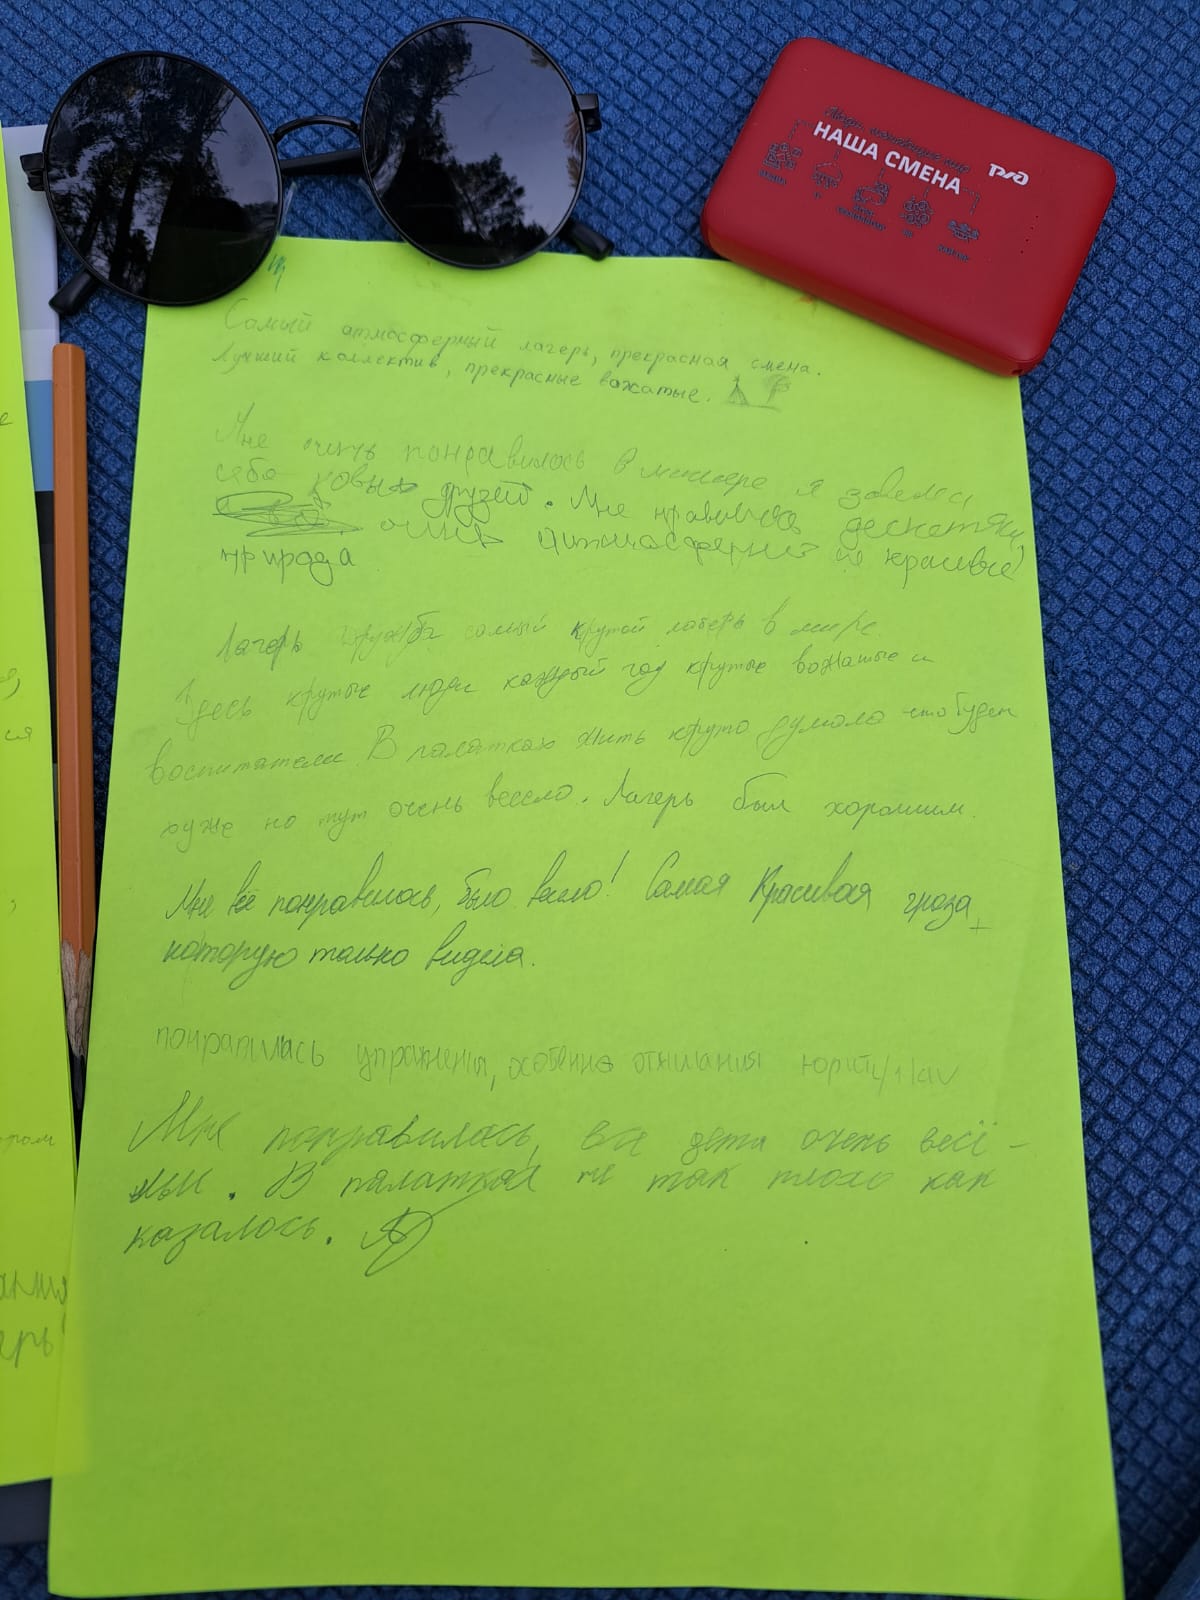 НАША СМЕНА
РЖД
Самый атмосферный лагерь, прекрасная смена.
Лучший коллектив, прекрасные вожатые.
Мне очень понравилось в лагере я завела
себе новых друзей. Мне нравится
очень и красивые
природа
Лагерь дружба самый крутой лагерь в мире.
Здесь крутые люди каждый год крутые вожатые и
воспитатели. В палатках жить круто думала что будет
хуже но тут очень весело. Лагерь был хорошим.
Мне всё понравилось, было весело! Самая Красивая гроза,
которую только видела.
понравилась упражнения, особенно отжимания
Мне понравилась, все дети очень весё-
лы. В палатках не так плохо как
казалось.
ером
ания
ерь